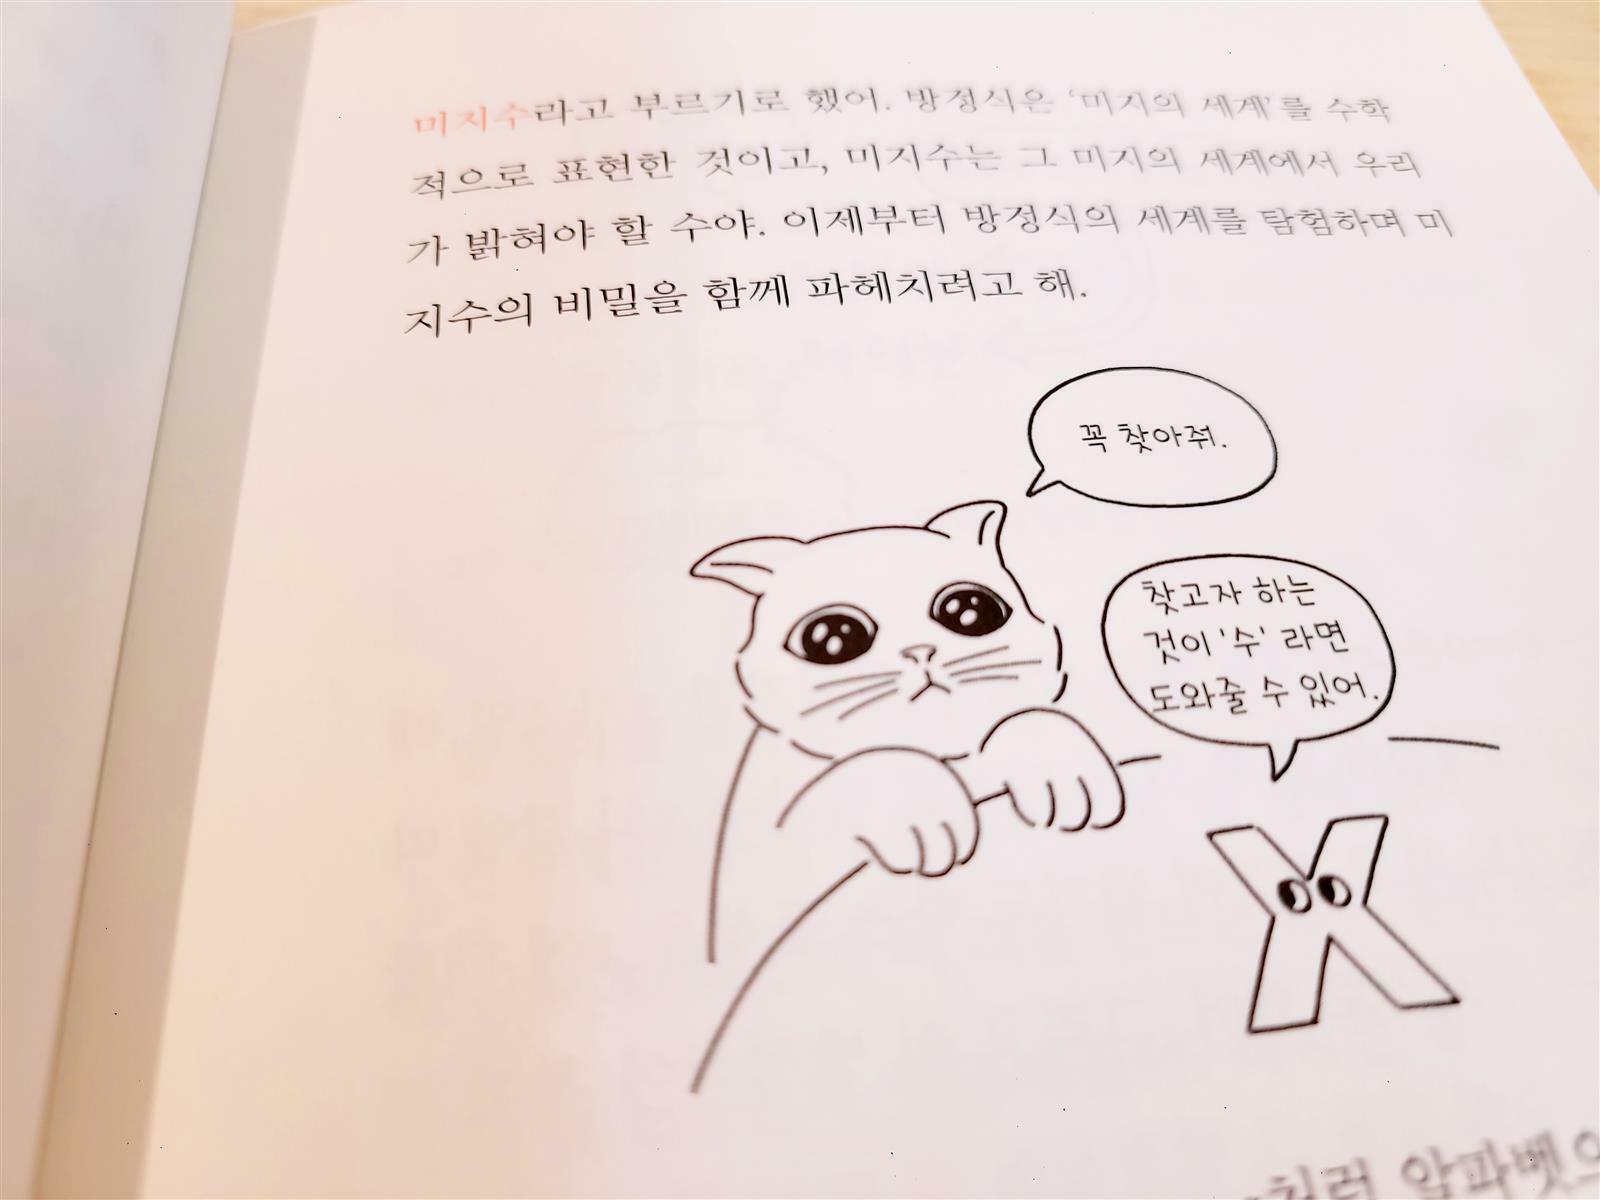 미지수라고 부르기로 했어. 방정식은 ‘미지의 세계’를 수학
적으로 표현한 것이고, 미지수는 그 미지의 세계에서 우리
가 밝혀야 할 수야. 이제부터 방정식의 세계를 탐험하며 미
지수의 비밀을 함께 파헤치려고 해.
꼭 찾아줘.
찾고자 하는
것이 '수' 라면
도와줄 수 있어.
X
처럼 알파벳으